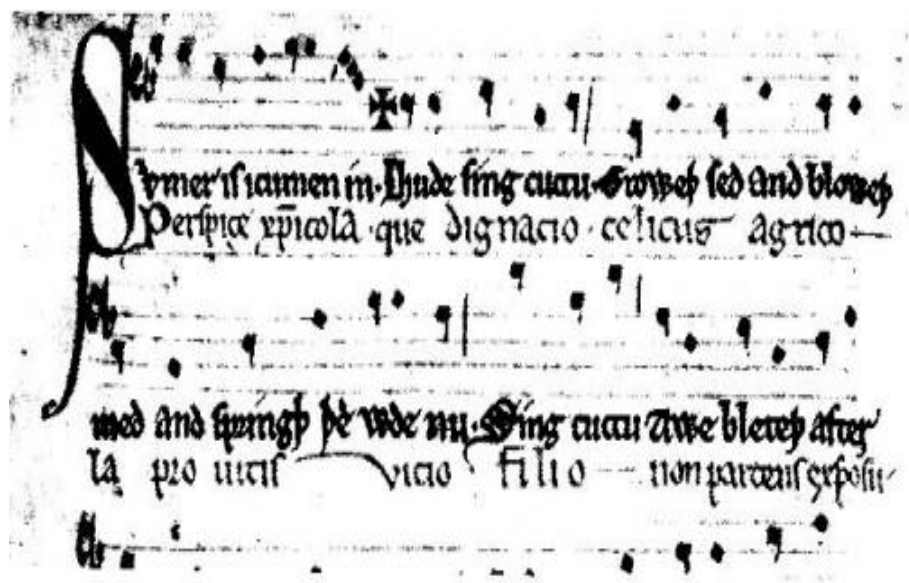 Sumer is icumen in· Lhude sing cuccu· Groweþ sed and bloweþ
Perspice xp̅icola· que dignacio· celicus agrico
med and springþ þe wde nu· Sing cuccu Awe bleteþ after
la pro uitis vicio filio non parcens exposu